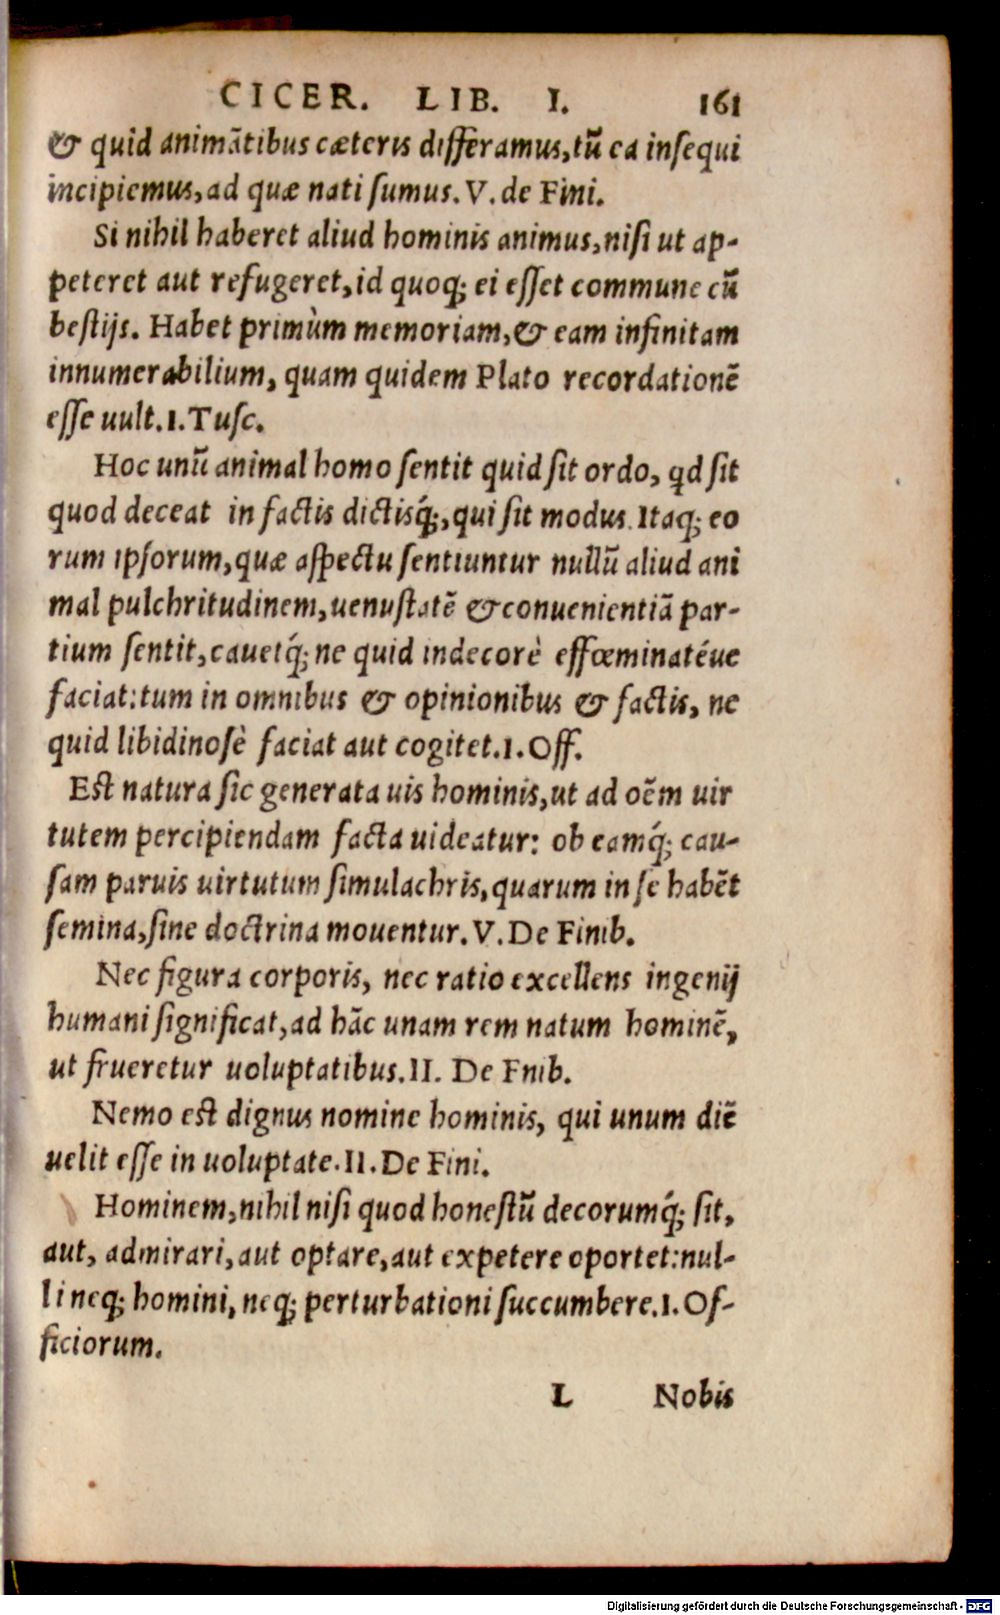 CICER. LIB. I. 161
& quid animãtibus cæteris differamus, tũ ea insequi
incipiemus, ad quæ nati sumus. V. de Fini.
Si nihil haberet aliud hominis animus, nisi ut ap-
peteret aut refugeret, id quoq; ei esset commune cũ
bestijs. Habet primùm memoriam, & eam infinitam
innumerabilium, quam quidem Plato recordationẽ
esse uult. I. Tusc.
Hoc unũ animal homo sentit quid sit ordo, qd sit
quod deceat in factis dictisq́;, qui sit modus. Itaq; eo
rum ipsorum, quæ aspectu sentiuntur nullũ aliud ani
mal pulchritudinem, uenustatẽ & conuenientiã par-
tium sentit, cauetq́; ne quid indecorè effœminatéue
faciat: tum in omnibus & opinionibus & factis, ne
quid libidinosè faciat aut cogitet. I. Off.
Est natura sic generata uis hominis, ut ad oẽm uir
tutem percipiendam facta uideatur: ob eamq́; cau-
sam paruis uirtutum simulachris, quarum in se habẽt
semina, sine doctrina mouentur. V. De Finib.
Nec figura corporis, nec ratio excellens ingenij
humani significat, ad hãc unam rem natum hominẽ,
ut frueretur uoluptatibus. II. De Fnib.
Nemo est dignus nomine hominis, qui unum diẽ
uelit esse in uoluptate. II. De Fini.
Hominem, nihil nisi quod honestũ decorumq́; sit,
aut, admirari, aut optare, aut expetere oportet: nul-
li neq; homini, neq; perturbationi succumbere. I. Of-
ficiorum.
L Nobis
Digitalisierung gefördert durch die Deutsche Forschungsgemeinschaft - DFG